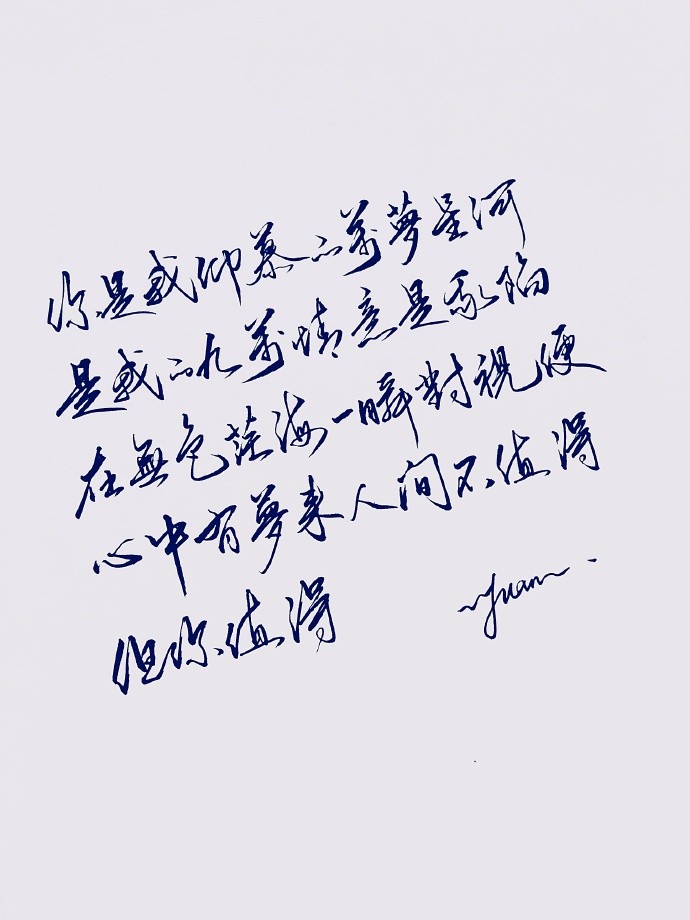 你是我仰慕的萬夢星河
是我的九萬情意是陷
在無色茫海一瞬對視便
心中有夢來人間不值得
但你值得
yuan.